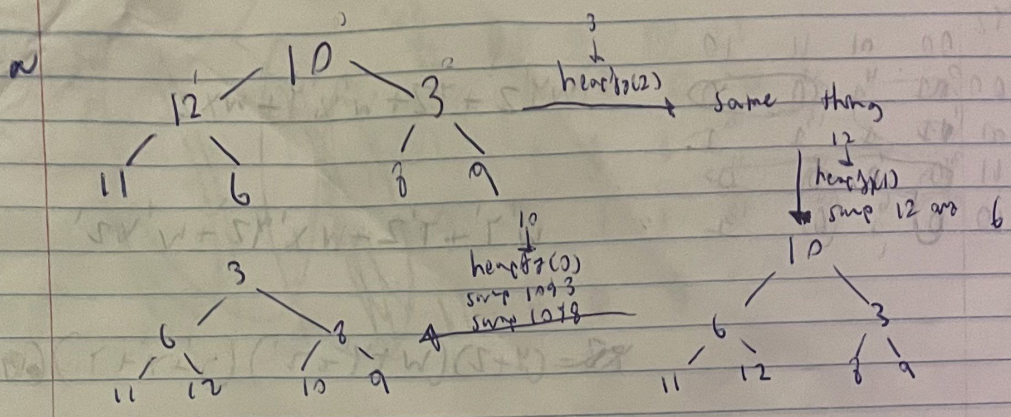 10
12 3
11 6 8 9
3
heapify(2)
same thing
12
heapify(1)
swap 12 and 6
10
6 3
11 12 8 9
10
heapify(0)
swap 10 & 3
swap 10 & 8
3
6 8
11 12 10 9